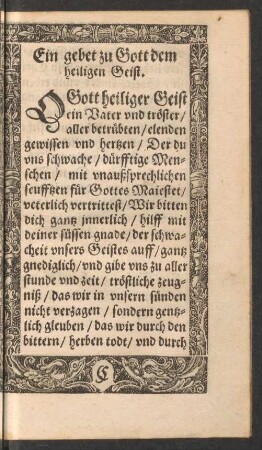 Ein gebet zu Gott dem
heiligen Geist.
O Gott heiliger Geist
ein Vater vnd tröster/
aller betrübten/elenden
gewissen vnd hertzen/ Der du
vns schwache/ dürfftige Men-
schen/ mit vnaußsprechlichen
seufftzen für Gottes Maiestet/
veterlich vertrittest/ Wir bitten
dich gantz innerlich/ hilff mit
deiner süssen gnade/ der schwa-
cheit vnsers Geistes auff/ gantz
gnediglich/ vnd gibe vns zu aller
stunde vnd zeit/ tröstliche zeug-
niß/ das wir in vnsern sünden
nicht verzagen/ sondern gentz-
lich gleuben/ das wir durch den
bittern/ herben todt/ vnd durch